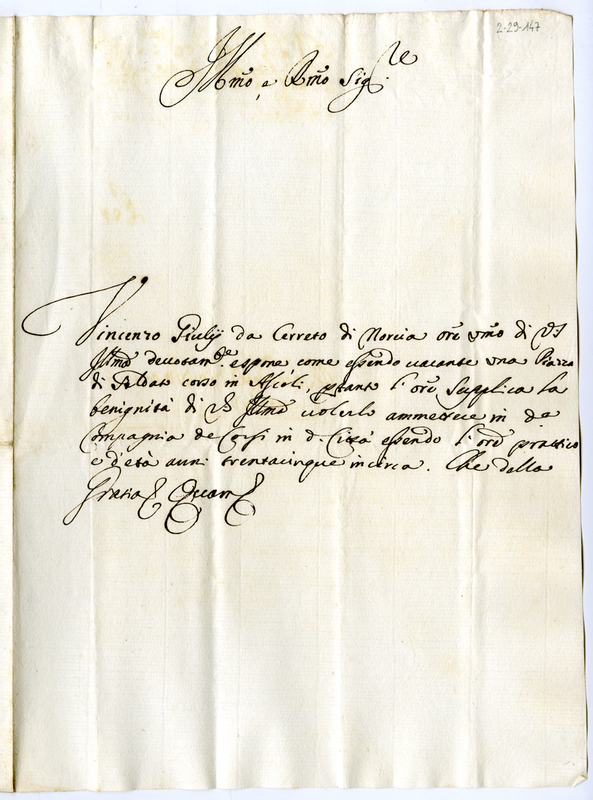 2-29-147
Illmo e Rmo Sigre
Vincenzo Giulij da Cerreto di Norcia ore vmo di VS
Illma deuotamte espone come essendo uacante vna Piazza
di soldato corso in Ascoli, ptanto l'ore supplica la
benignità di VS Illma uolerlo ammettere in da
Compagnia de Corsi in d. Città essendo l'ore prattico
e d'età anni trentacinque incirca. Che della
Gratia